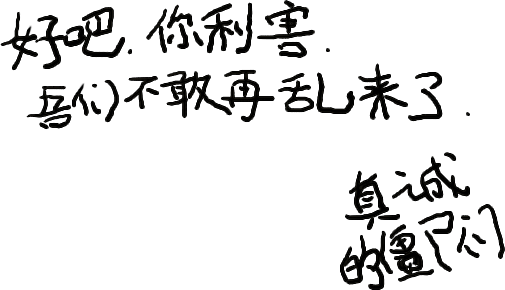 好吧.你利害.
吾们不敢再乱来了.
真诚
的僵尸们